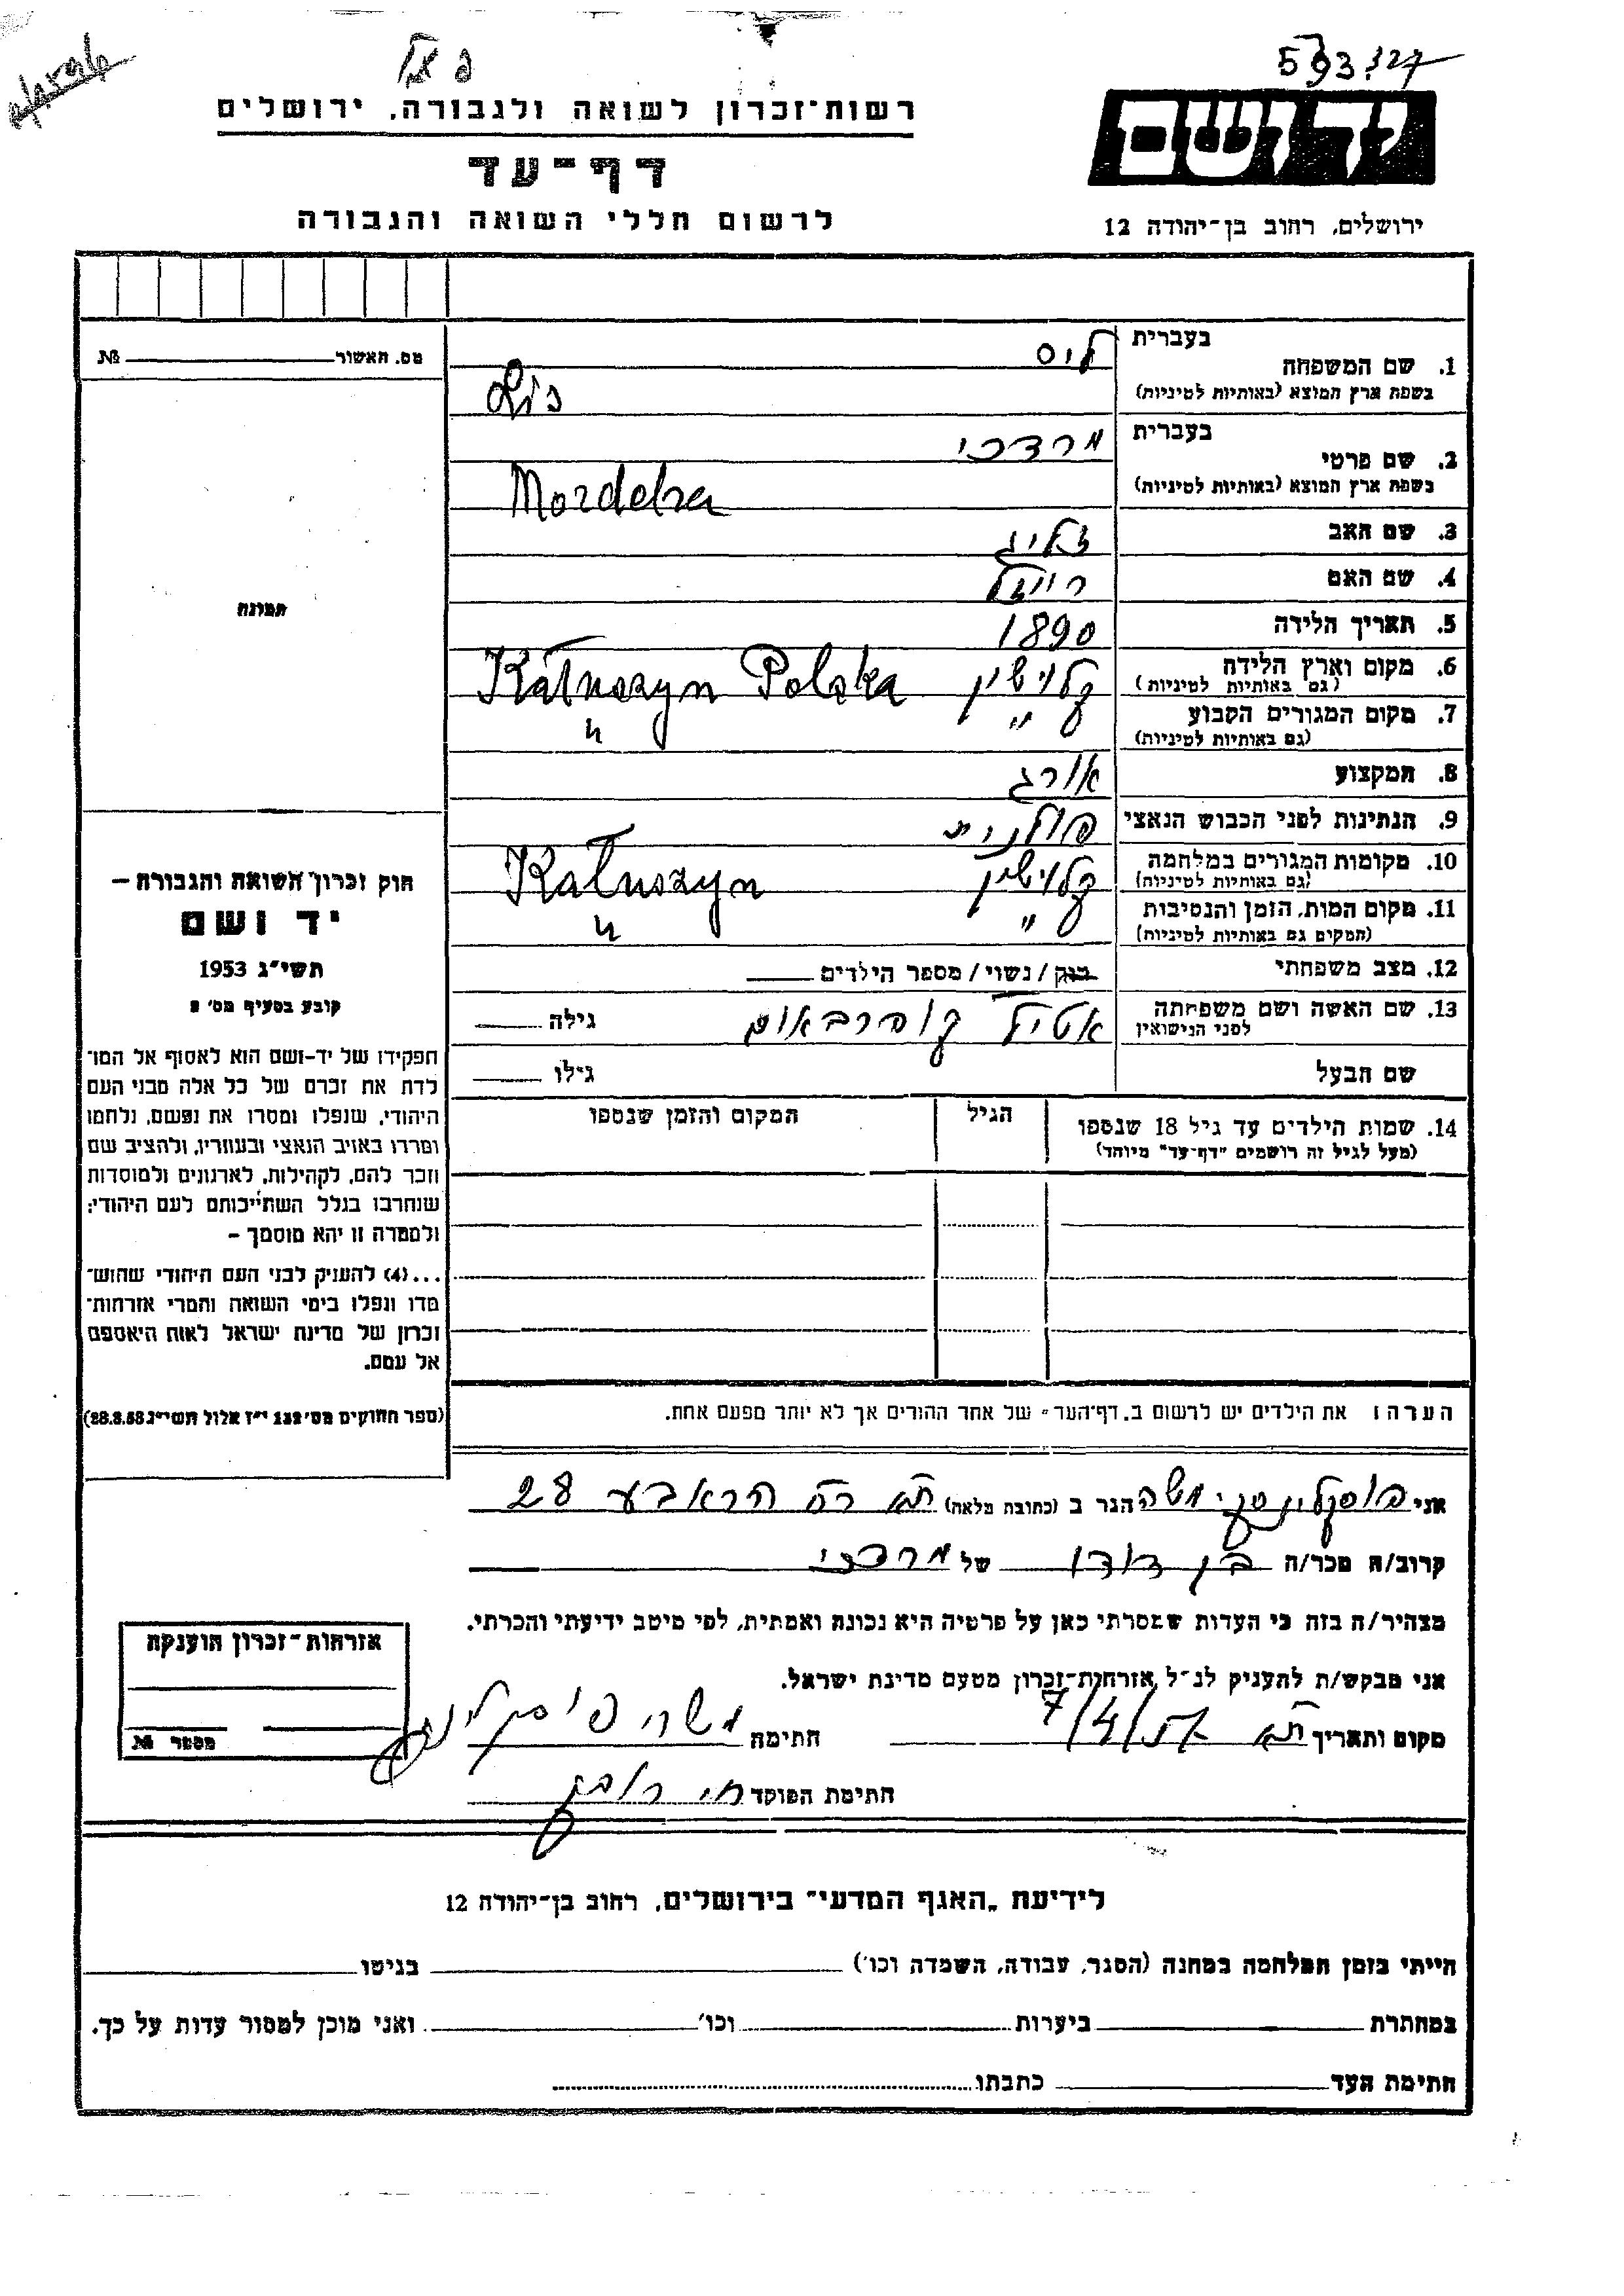 593 327
רשות-זכרון לשואה ולגבורה, ירושלים
יד ושם
דף-עד
לרשום חללי השואה והגבורה
ירושלים, רחוב בן-יהודה 12
בעברית
1. שם המשפחה ליס
בשפת ארץ המוצא (באותיות לטיניות) Lis
בעברית
2. שם פרטי מרדכי
בשפת ארץ המוצא (באותיות לטיניות)
3. שם האב זליג
4. שם האם רויזל
5. תאריך הלידה 1890
6. מקום וארץ הלידה קלושין Kałuszyn Polska
(גם באותיות לטיניות)
7. מקום המגורים הקבוע " "
(גם באותיות לטיניות)
8. המקצוע אורג
9. הנתינות לפני הכבוש הנאצי פולנית
10. מקומות המגורים במלחמה קלושין Kałuszyn
(גם באותיות לטיניות)
11. מקום המות, הזמן והנסיבות " "
(המקום גם באותיות לטיניות)
12. מצב משפחתי רוק / נשוי / מספר הילדים
13. שם האשה ושם משפחתה אטיל קופרבאום גילה
לפני הנישואין
שם הבעל גילו
14. שמות הילדים עד גיל 18 שנספו הגיל המקום והזמן שנספו
(מעל לגיל זה רושמים "דף-עד" מיוחד)
הערה: את הילדים יש לרשום ב"דף-העד" של אחד ההורים אך לא יותר מפעם אחת.
מס. תאשור №
תמונה
חוק זכרון השואה והגבורה –
יד ושם
תשי"ג 1953
קובע בסעיף מס' 2
תפקידו של יד-ושם הוא לאסוף אל המו־
לדת את זכרם של כל אלה מבני העם
היהודי, שנפלו ומסרו את נפשם, נלחמו
ומרדו באויב הנאצי ובעוזריו, ולהציב שם
וזכר להם, לקהילות, לארגונים ולמוסדות
שנחרבו בגלל השתייכותם לעם היהודי;
ולמטרה זו יהא מוסמך –
...(4) להעניק לבני העם היהודי שהוש־
מדו ונפלו בימי השואה והמרי אזרחות־
זכרון של מדינת ישראל לאות היאספם
אל עמם.
(ספר החוקים מס' 132 י"ז אלול תשי"ג 28.8.53)
אני משה הגר ב (כתובת מלאה) ת"א רח 28
קרוב/ה מכר/ה בן דודו של מרדכי
מצהיר/ה בזה כי העדות שמסרתי כאן על פרטיה היא נכונה ואמתית, לפי מיטב ידיעתי והכרתי.
אני מבקש/ת להעניק לנ"ל אזרחות-זכרון מטעם מדינת ישראל.
מקום ותאריך ת"א 7/4/ חתימה משה
חתימת הפוקד
אזרחות-זכרון הוענקה
מספר №
לידיעת "האגף המדעי" בירושלים, רחוב בן-יהודה 12
הייתי בזמן המלחמה במחנה (הסגר, עבודה, השמדה וכו') בגיטו
במחתרת ביערות וכו' ואני מוכן למסור עדות על כך.
חתימת העד כתבתו